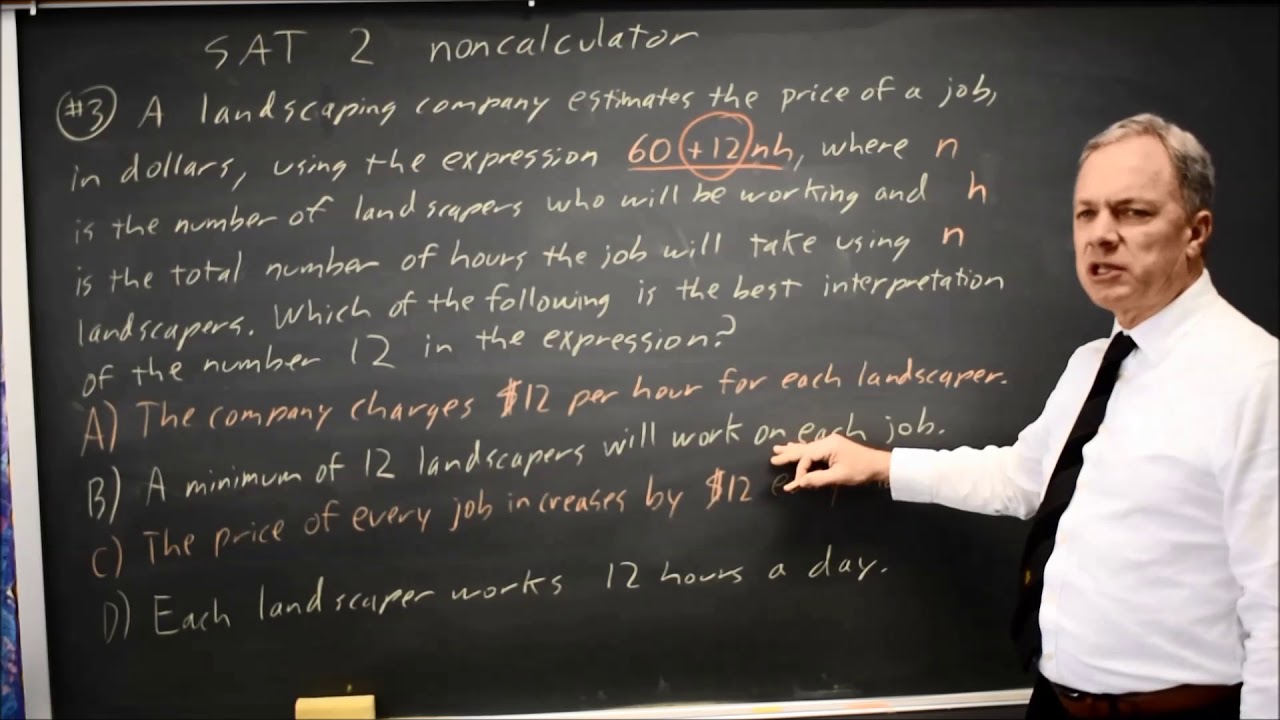 SAT 2 noncalculator
#3 A landscaping company estimates the price of a job,
in dollars, using the expression 60 + 12nh, where n
is the number of landscapers who will be working and h
is the total number of hours the job will take using n
landscapers. Which of the following is the best interpretation
of the number 12 in the expression?
A) The company charges $12 per hour for each landscaper.
B) A minimum of 12 landscapers will work on each job.
C) The price of every job increases by $12
D) Each landscaper works 12 hours a day.